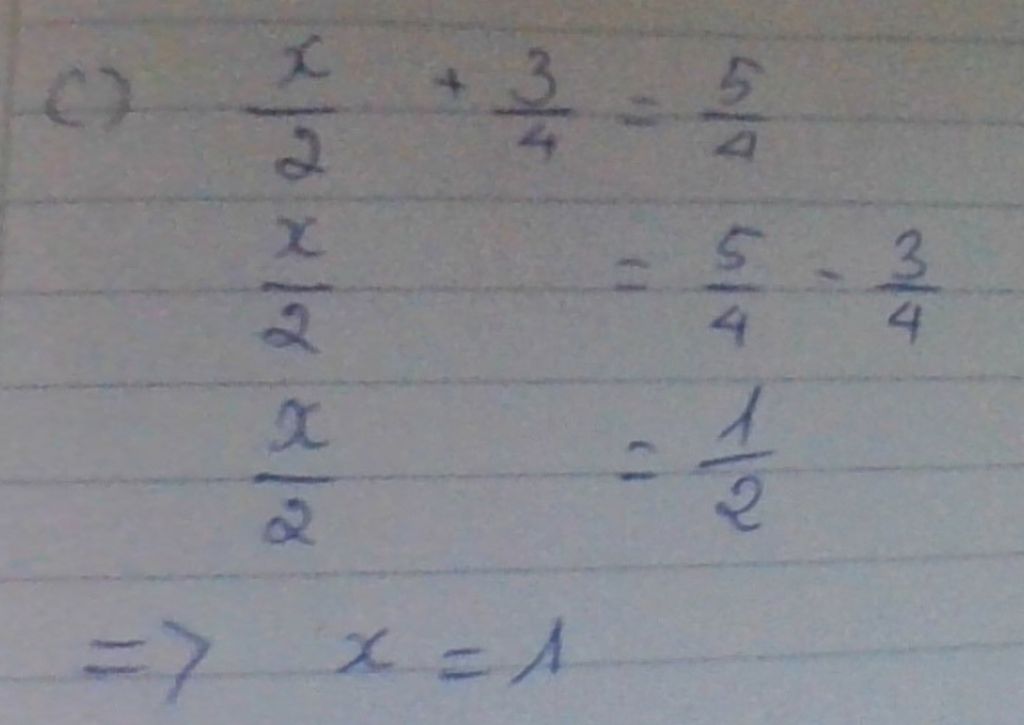 c) x/2 + 3/4 = 5/4
x/2 = 5/4 - 3/4
x/2 = 1/2
=> x = 1